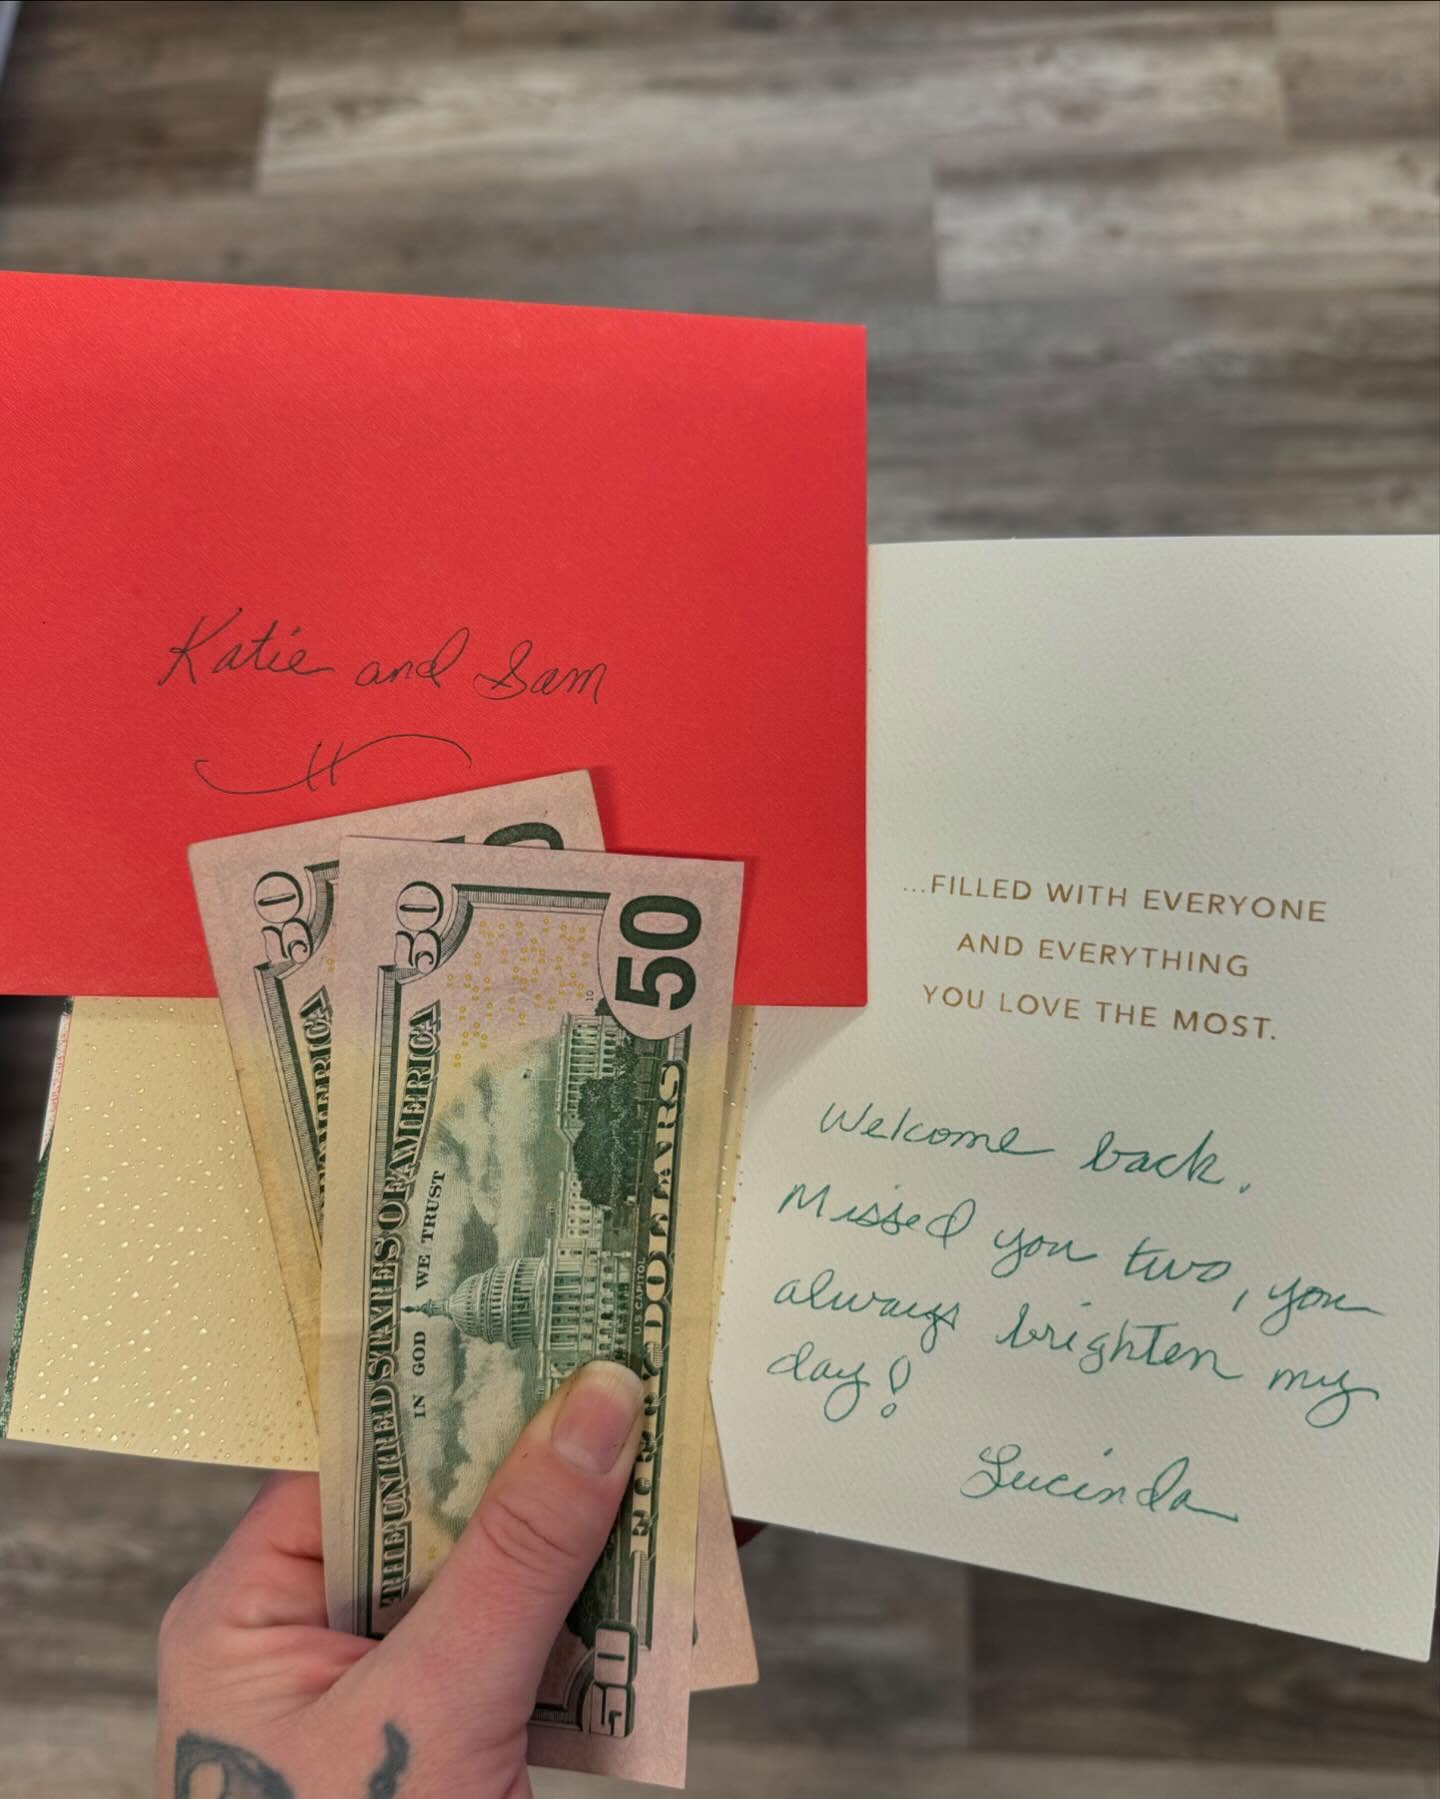 Katie and Sam
50
50
50
10
THE UNITED STATES OF AMERICA
IN GOD WE TRUST
U.S. CAPITOL
FIFTY DOLLARS
50
...FILLED WITH EVERYONE
AND EVERYTHING
YOU LOVE THE MOST.
Welcome back.
Missed you two, you
always brighten my
day!
Lucinda